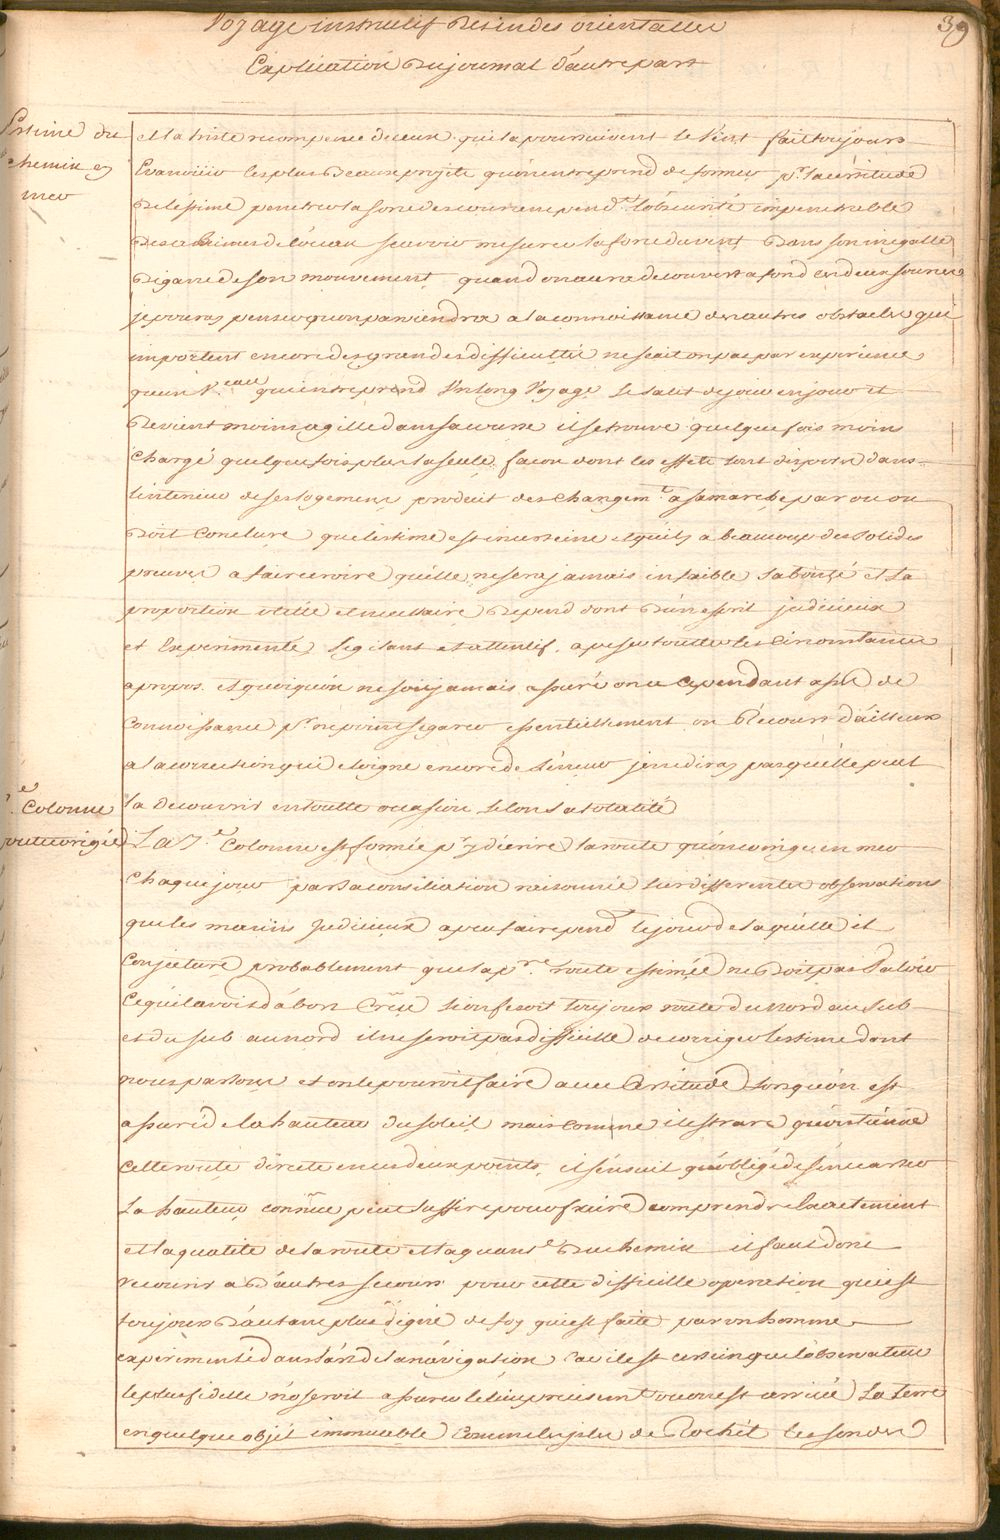 Voyage instructif Des indes orientalles
39
Explication Du journal d'autre part
L'estime du
chemin en
mer
et la triste recompense de ceux qui la poursuivent le Vent fait toujours
Evanoüir les plus Beaux projets qu'on entreprend de former pr. la certitude
De l'estime penetrer la force des courens pendt. l'obscurité impenetrable
Des abimes de l'ocean sçavoir mesurer la force du vent Dans son inegalle
Bigarrede son mouvement quand on aura decouvert a fond ces deux sources
je pouray penser qu'on parviendra a la connoissance des autres obstacles qui
importent encore des grandes difficultés ne sçait on pas par experience
qu'un Veau. qui entreprend Un long Voyage Se salit de jour en jour et
Devient moins agille dans sa course il se trouve quelque fois moins
Chargé quelque fois plus la seule façon dont les effets sont disposés dans
l'interieur de ses logemens produit des changemts. a sa marche par ou on
Doit Conclure que l'estime est incertaine et qu'il y a beaucoup de solides
preuves a faire croire qu'elle ne sera jamais infaible sa bonté et la
proportion utille et necessaire Depend dont D'un esprit judicieux
et Experimenté Vigilant et attentif a peser toutte les Circonstances
a propos et quoiqu'on ne soit jamais assuré on a Cependant assés de
Connoissance pr. ne point s'egarer essentiellement on a Recours d'ailleurs
a la correction qui eloigne encore de l'erreur je ne diray pas qu'elle peut
la decouvrir en toutte occasion selon sa totalité
7.e Colonne
routte corrigée
La 7.e Colonne est formée pr. y d'écrire la route qu'on corrige en mer
Chaque jour par la consiliation raisonnée sur differentes observations
que les marins judicieux a peu faire pendt. le jour de laquelle il
Conjecture probablement que la pre. route estimée ne Doit pas Valoir
Ce qu'il avoit d'abort Crëu si on fesoit toujour route du Nord au Sud
et du sud au nord il ne seroit pas difficille de corriger l'estime dont
nous parlons et on le pouroit faire avec Certitude lorsqu'on est
assuré de la hauteur du soleil mais comme il est rare qu'on tienne
Cette route directe en ces deux points, il s'ensuit qu'obligé de s'en ecarter
La hauteur connüe peut suffire pour faire comprendre Exactement
et la qualité de la route et la quante. Du chemin il faut donc
recourir a D'autres secours pour cette difficille operation qui est
toujours D'autant plus digne de foy qui est faite par un homme
experimenté dans l'art de la navigation Car il est certain que l'observateur
le plus fidelle n'oseroit assurer le lieu precisemt. ou on est arrivée La terre
en quelque objet immuable Comme les isles de Rochet les sondes